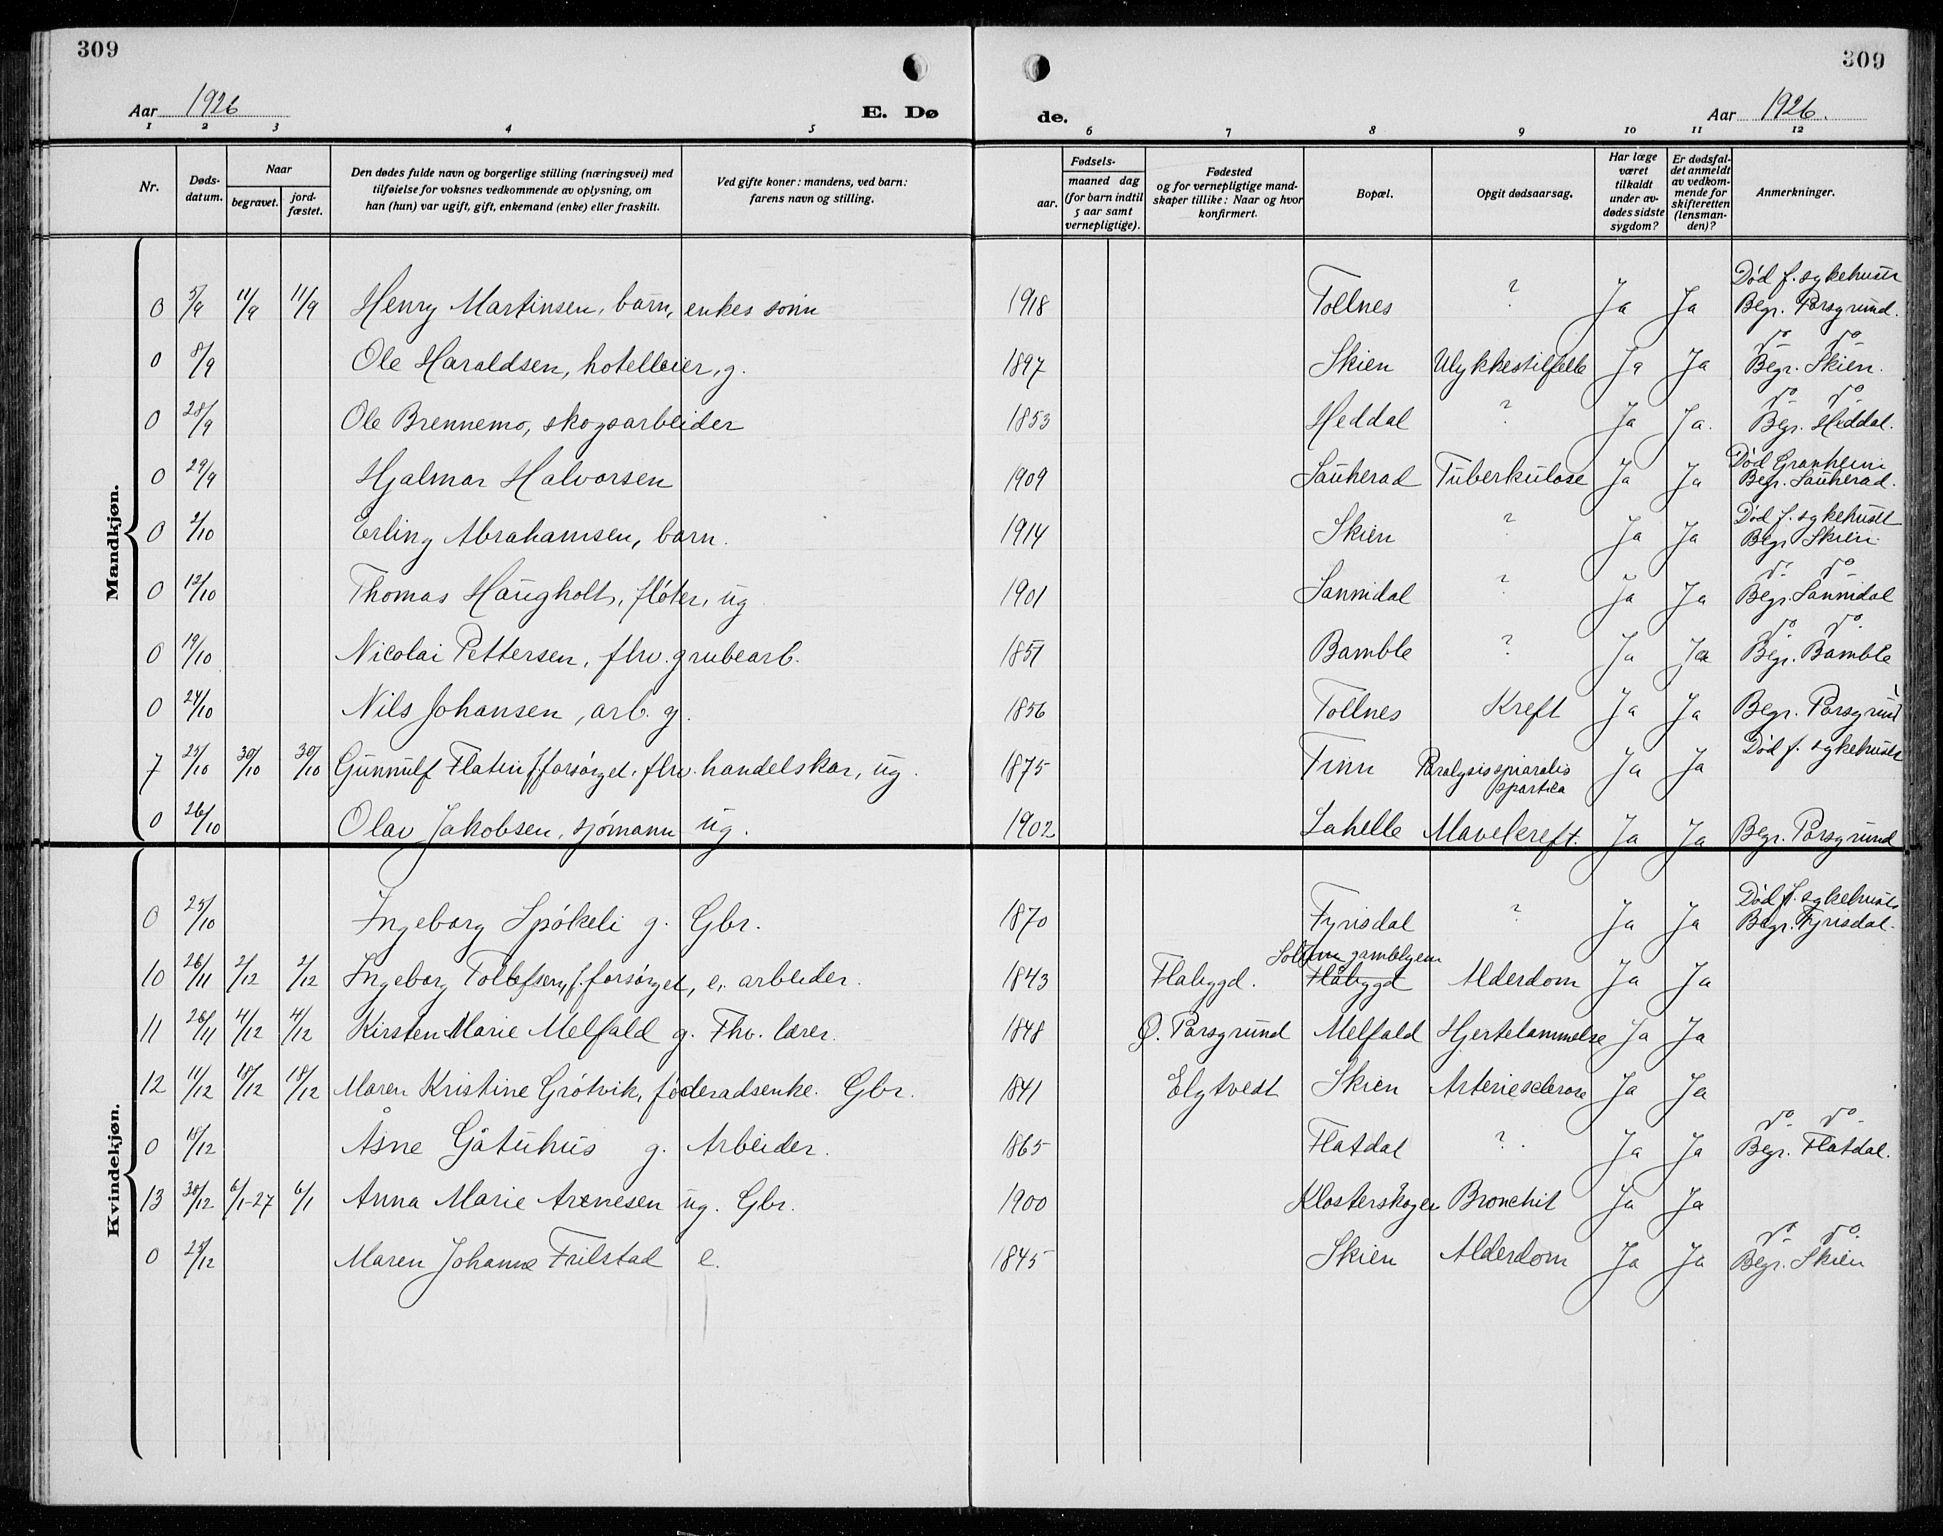 309
309
Aar 1926
E. Dø
de.
Aar 1926.
1 2 3 4 5 6 7 8 9 10 11 12
Nr.
Døds-
datum.
Naar
begravet.
jord-
fæstet.
Den dødes fulde navn og borgerlige stilling (næringsvei) med
tilføielse for voksnes vedkommende av oplysning, om
han (hun) var ugift, gift, enkemand (enke) eller fraskilt.
Ved gifte koner: mandens, ved barn:
farens navn og stilling.
Fødsels-
aar.
maaned dag
(for barn indtil
5 aar samt
vernepligtige).
Fødested
og for vernepligtige mand-
skaper tillike: Naar og hvor
konfirmert.
Bopæl.
Opgit dødsaarsag.
Har læge
været
tilkaldt
under av-
dødes sidste
sygdom?
Er dødsfal-
det anmeldt
av vedkom-
mende for
skifteretten
(lensman-
den)?
Anmerkninger.
Mandkjøn.
0 5/9 11/9 11/9 Henry Martinsen, barn, enkes sønn 1918 Tollnes ? Ja Ja Død f. sykehuset
Begr. Porsgrund.
0 8/9 Ole Haraldsen, hotelleier, g. 1897 Skien Ulykkestilfelle Ja Ja do do
Begr. Skien.
0 28/9 Ole Brennemo, skogsarbeider 1853 Heddal ? Ja Ja. do do
Begr. Heddal.
0 29/9 Hjalmar Halvorsen 1909 Sauherad Tuberkulose Ja Ja Død Granheim
Begr. Sauherad.
0 2/10 Erling Abrahamsen, barn. 1914 Skien ? Ja Ja Død f. sykehuset
Begr Skien.
0 12/10 Thomas Haugholt, fløter, ug 1901 Sannidal ? Ja Ja do do
Begr. Sannidal
0 19/10 Nicolai Pettersen, fhv. grubearb. 1851 Bamble ? Ja Ja do do.
Begr. Bamble
0 24/10 Nils Johansen, arb. g. 1856 Tollnes Kreft Ja Ja Begr. Porsgrund
7 25/10 30/10 30/10 Gunnulf Flatin f. forsørget, fhv. handelskar, ug. 1875 Tinn Paralysis spinalis
spastica Ja Ja Død f. sykehuset
0 26/10 Olav Jakobsen, sjømann ug. 1902 Lahelle Mavekreft. Ja Ja Begr. Porsgrund
Kvindekjøn.
0 25/10 Ingeborg Spøkeli g. Gbr. 1870 Fyrisdal ? Ja Ja Død f. sykehuset
Begr. Fyrisdal.
10 26/11 2/12 2/12 Ingeborg Tollefsen, f. forsørget, e. arbeider. 1843 Flabygd. Solum gamlehjem
Flåbygd Alderdom Ja Ja
11 26/11 4/12 4/12 Kirsten Marie Melfald g. Fhv. lærer. 1848 Ø. Porsgrund Melfald Hjertelammelse Ja Ja
12 11/12 18/12 18/12 Maren Kristine Grøtvik, føderadsenke. Gbr. 1841 Elgtvedt Skien Arteriesclerose Ja Ja
0 18/12 Åsne Gåtuhus g. Arbeider. 1865 Flatdal ? Ja Ja do do
Begr. Flatdal.
13 30/12 6/1-27 6/1 Anna Marie Arnesen ug. Gbr. 1900 Klosterskogen Bronchit Ja Ja
0 25/12 Maren Johanne Frilstad e. 1845 Skien Alderdom Ja Ja do do.
Begr. Skien